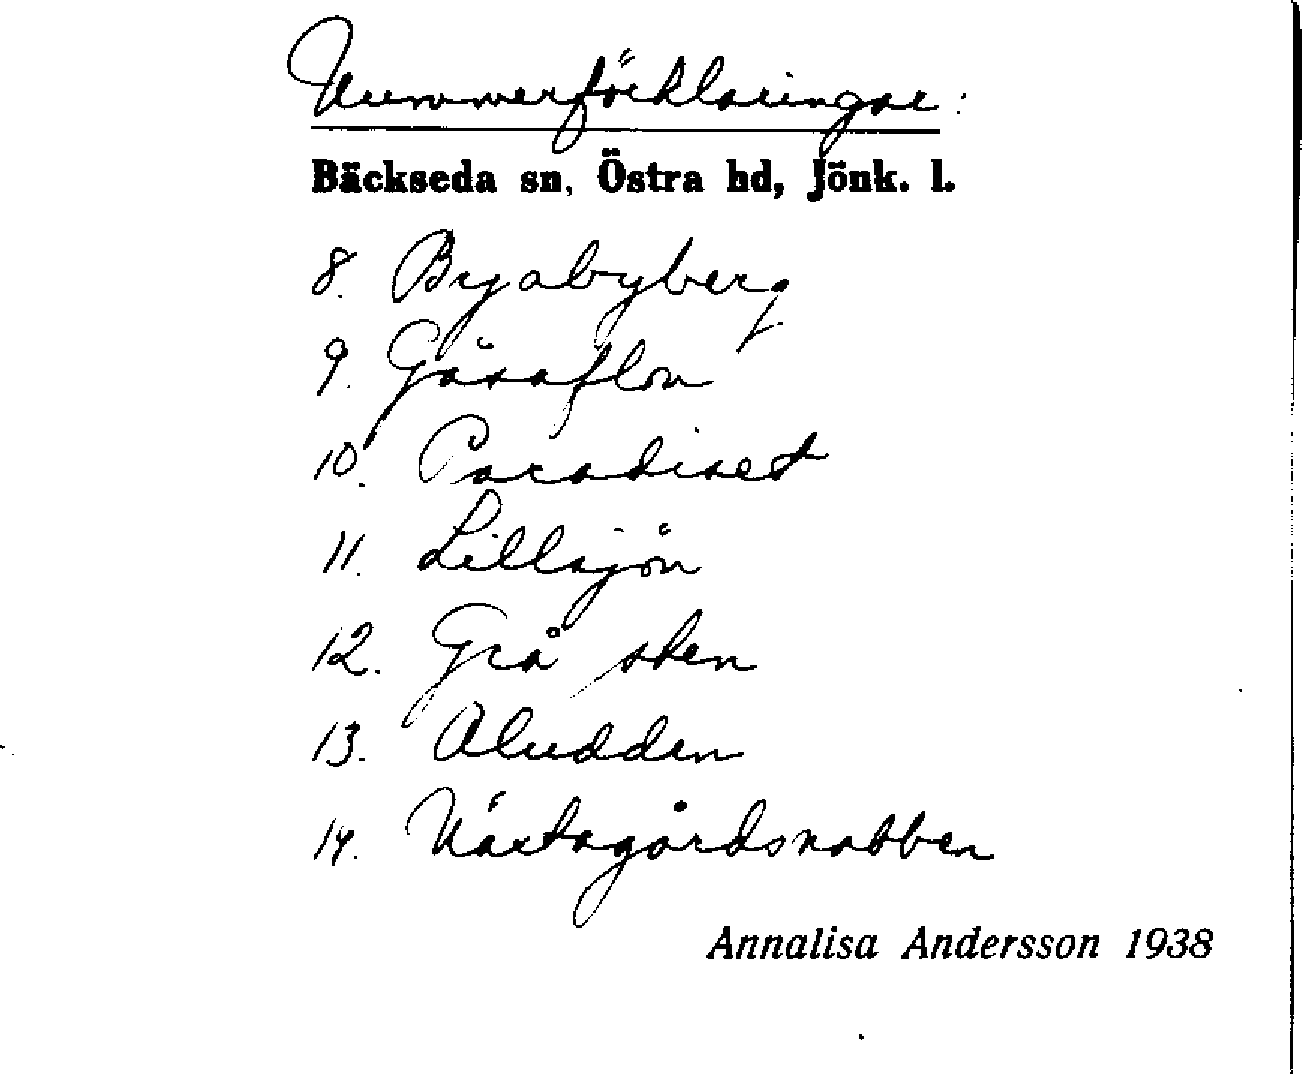 Nummerförklaringar:
Bäckseda sn, Östra hd, Jönk. l.
8. Bryabyberg
9. Gåsaflon
10. Paradiset
11. Lillsjön
12. Grå sten
13. Aludden
14. Västagårdsnabben
Annalisa Andersson 1938